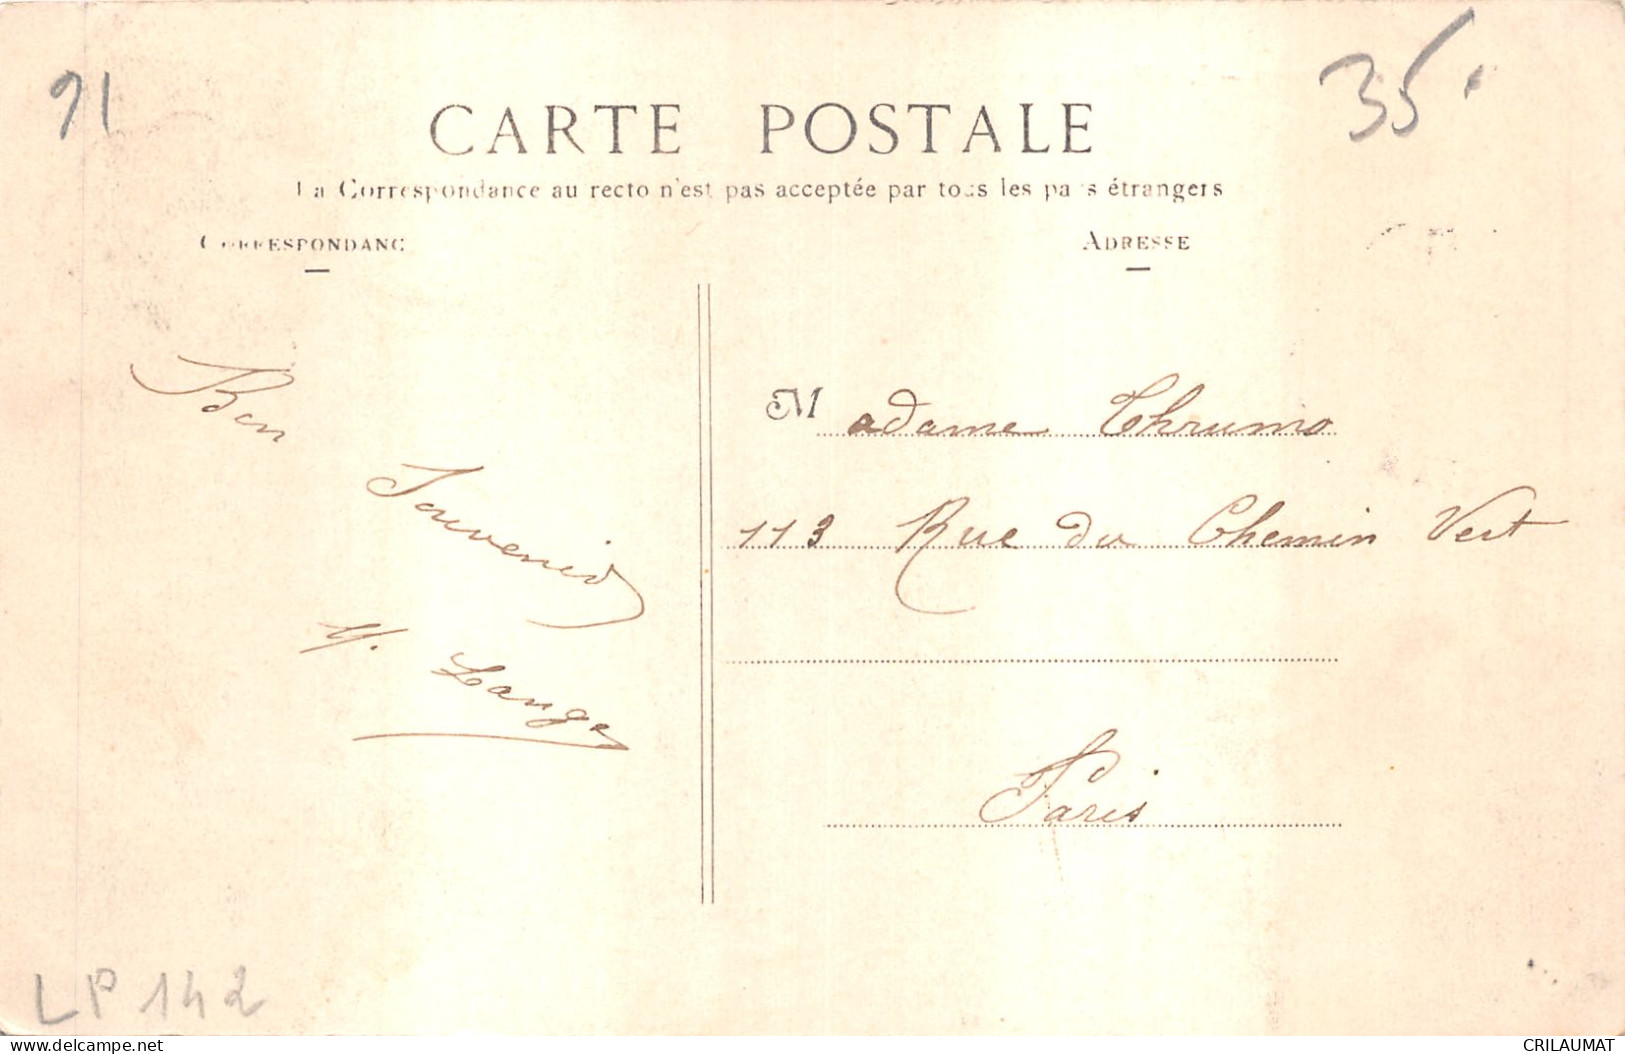 91
35
CARTE POSTALE
La Correspondance au recto n'est pas acceptée par tous les pays étrangers
CORRESPONDANC
ADRESSE
Bon
Souvenir
Y. Lange
Madame Thrumo
113 Rue du Chemin Vert
Paris
LP 142
www.delcampe.net
CRILAUMAT